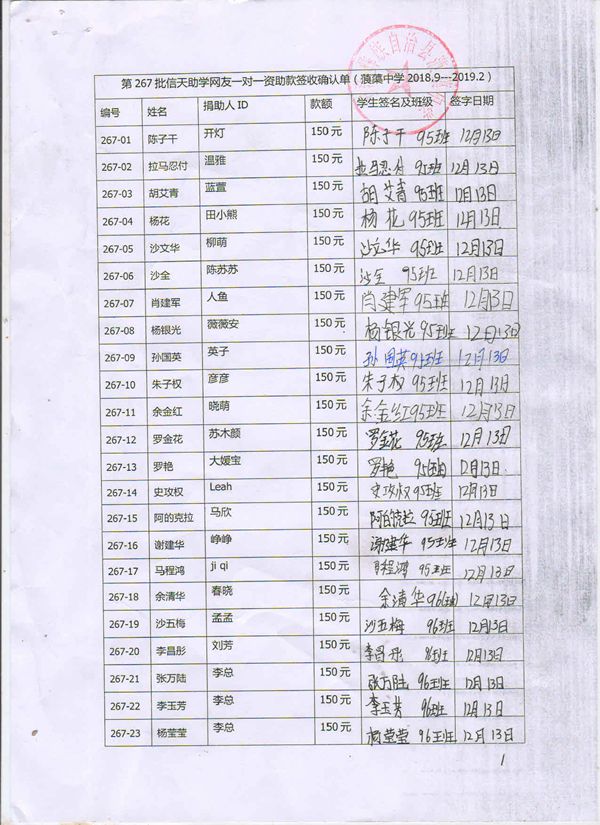 族自治县
第 267 批信天助学网友一对一资助款签收确认单（蒗蕖中学 2018.9---2019.2）
编号 姓名 捐助人 ID 款额 学生签名及班级 签字日期
267-01 陈子干 开灯 150 元 陈子干 95班 12月13日
267-02 拉马忍付 温雅 150 元 拉马忍付 95班 12月13日
267-03 胡艾青 蓝萱 150 元 胡艾青 95班 12月13日
267-04 杨花 田小熊 150 元 杨花 95班 12月13日
267-05 沙文华 柳萌 150 元 沙文华 95班 12月13日
267-06 沙金 陈苏苏 150 元 沙金 95班 12月13日
267-07 肖建军 人鱼 150 元 肖建军 95班 12月13日
267-08 杨银光 薇薇安 150 元 杨银光 95班 12月13日
267-09 孙国英 英子 150 元 孙国英 95班 12月13日
267-10 朱子权 彦彦 150 元 朱子权 95班 12月13日
267-11 余金红 晓萌 150 元 余金红 95班 12月13日
267-12 罗金花 苏木颜 150 元 罗金花 95班 12月13日
267-13 罗艳 大媛宝 150 元 罗艳 95班 12月13日
267-14 史攻权 Leah 150 元 史攻权 95班 12月13日
267-15 阿的克拉 马欣 150 元 阿的克拉 95班 12月13日
267-16 谢建华 峥峥 150 元 谢建华 95班 12月13日
267-17 马程鸿 ji qi 150 元 马程鸿 95班 12月13日
267-18 余清华 春晓 150 元 余清华 96班 12月13日
267-19 沙五梅 孟孟 150 元 沙五梅 96班 12月13日
267-20 李昌彤 刘芳 150 元 李昌彤 96班 12月13日
267-21 张万陆 李总 150 元 张万陆 96班 12月13日
267-22 李玉芳 李总 150 元 李玉芳 96班 12月13日
267-23 杨莹莹 李总 150 元 杨莹莹 96班 12月13日
1